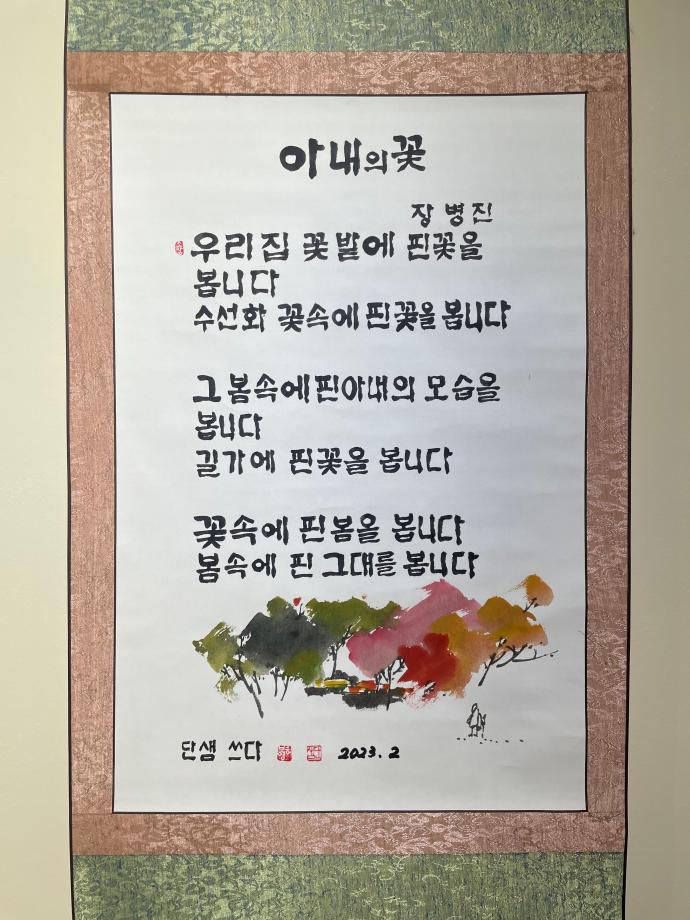 아내의 꽃
장병진
우리집 꽃밭에 핀꽃을
봅니다
수선화 꽃속에 핀꽃을 봅니다
그 봄속에 핀 아내의 모습을
봅니다
길가에 핀꽃을 봅니다
꽃속에 핀봄을 봅니다
봄속에 핀 그대를 봅니다
단샘 쓰다 2023. 2